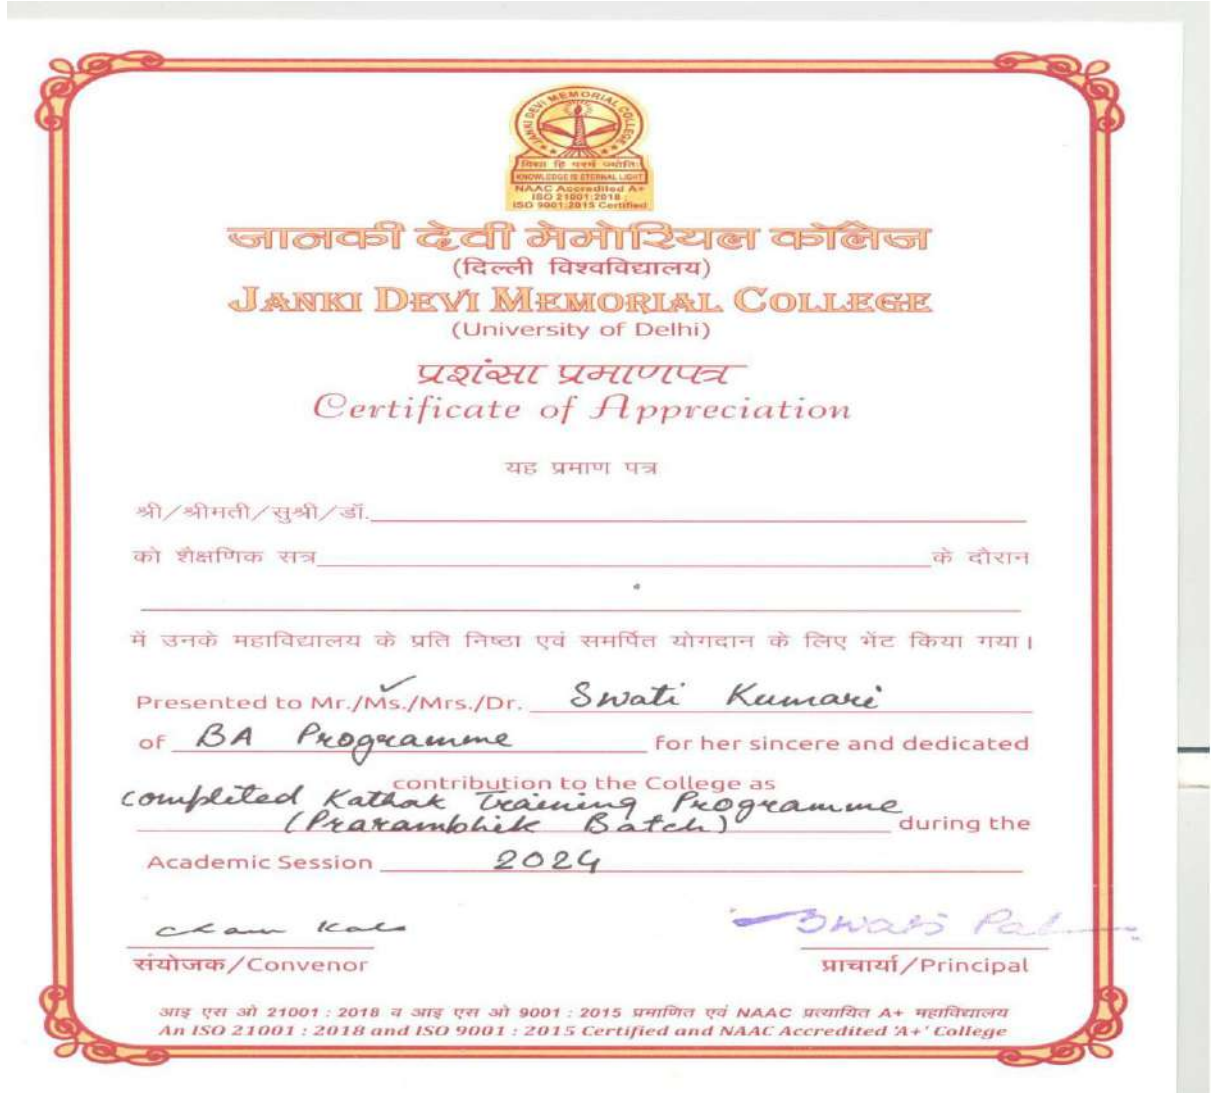 JANKI DEVI MEMORIAL COLLEGE
विद्या हि परमं ज्योतिः
KNOWLEDGE IS ETERNAL LIGHT
NAAC Accredited A+
ISO 21001:2018
ISO 9001:2015 Certified
जानकी देवी मेमोरियल कॉलेज
(दिल्ली विश्वविद्यालय)
JANKI DEVI MEMORIAL COLLEGE
(University of Delhi)
प्रशंसा प्रमाणपत्र
Certificate of Appreciation
यह प्रमाण पत्र
श्री/श्रीमती/सुश्री/डॉ.
को शैक्षणिक सत्र के दौरान
में उनके महाविद्यालय के प्रति निष्ठा एवं समर्पित योगदान के लिए भेंट किया गया।
Presented to Mr./Ms./Mrs./Dr. Swati Kumari
of BA Programme for her sincere and dedicated
contribution to the College as
complited Kathak Training Programme
(Prarambhik Batch) during the
Academic Session 2024
Swati Pal
संयोजक/Convenor प्राचार्या/Principal
आइ एस ओ 21001 : 2018 व आइ एस ओ 9001 : 2015 प्रमाणित एवं NAAC प्रत्यायित A+ महाविद्यालय
An ISO 21001 : 2018 and ISO 9001 : 2015 Certified and NAAC Accredited 'A+' College